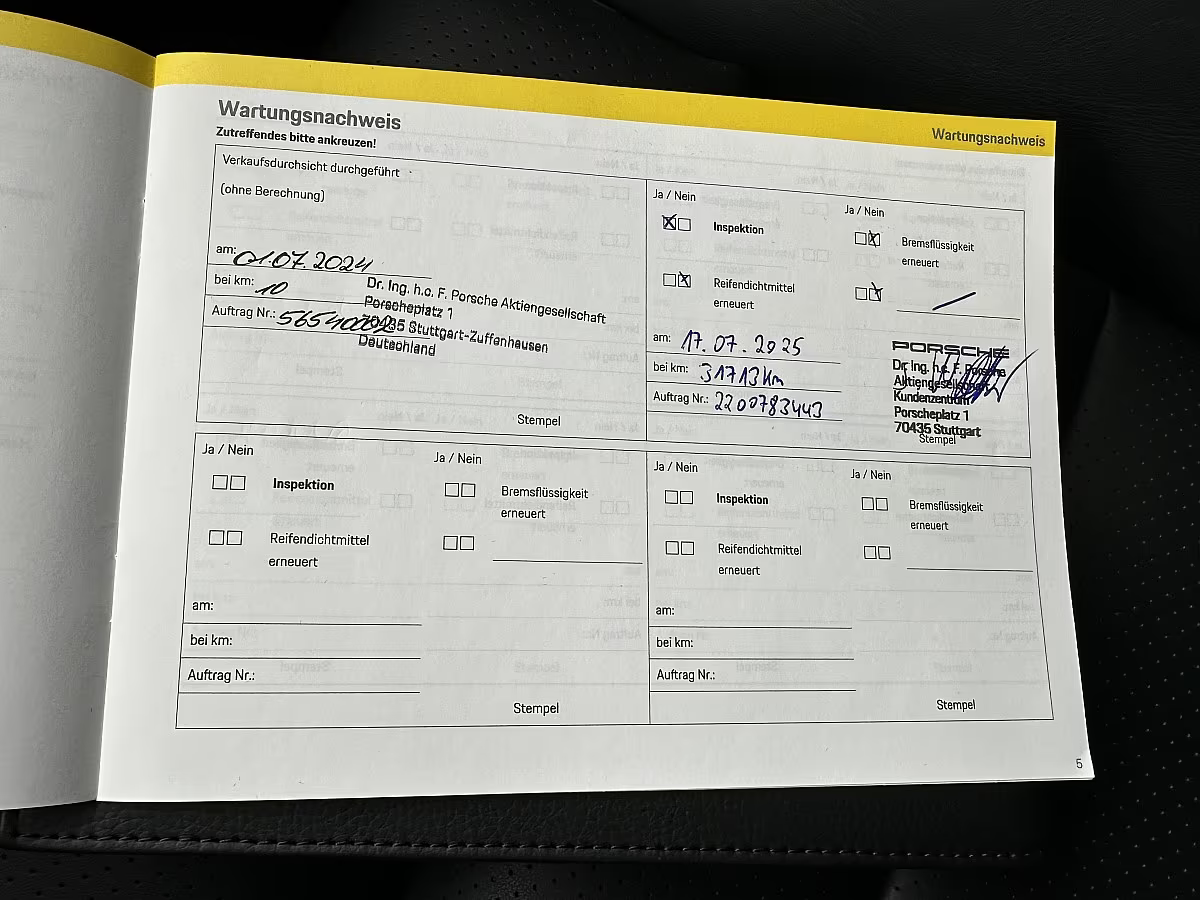 Wartungsnachweis
Wartungsnachweis
Zutreffendes bitte ankreuzen!
Verkaufsdurchsicht durchgeführt
(ohne Berechnung)
am: 01.07.2024
bei km: 10
Auftrag Nr.:
Dr. Ing. h.c. F. Porsche Aktiengesellschaft
Porscheplatz 1
70435 Stuttgart-Zuffenhausen
Deutschland
Stempel
Ja / Nein
Ja / Nein
Inspektion
Bremsflüssigkeit
erneuert
Reifendichtmittel
erneuert
am: 17.07.2025
bei km: 31713km
Auftrag Nr.: 2200783443
PORSCHE
Dr. Ing. h.c. F. Porsche
Aktiengesellschaft
Kundenzentrum
Porscheplatz 1
70435 Stuttgart
Stempel
Ja / Nein
Ja / Nein
Inspektion
Bremsflüssigkeit
erneuert
Reifendichtmittel
erneuert
am:
bei km:
Auftrag Nr.:
Stempel
Ja / Nein
Ja / Nein
Inspektion
Bremsflüssigkeit
erneuert
Reifendichtmittel
erneuert
am:
bei km:
Auftrag Nr.:
Stempel
5